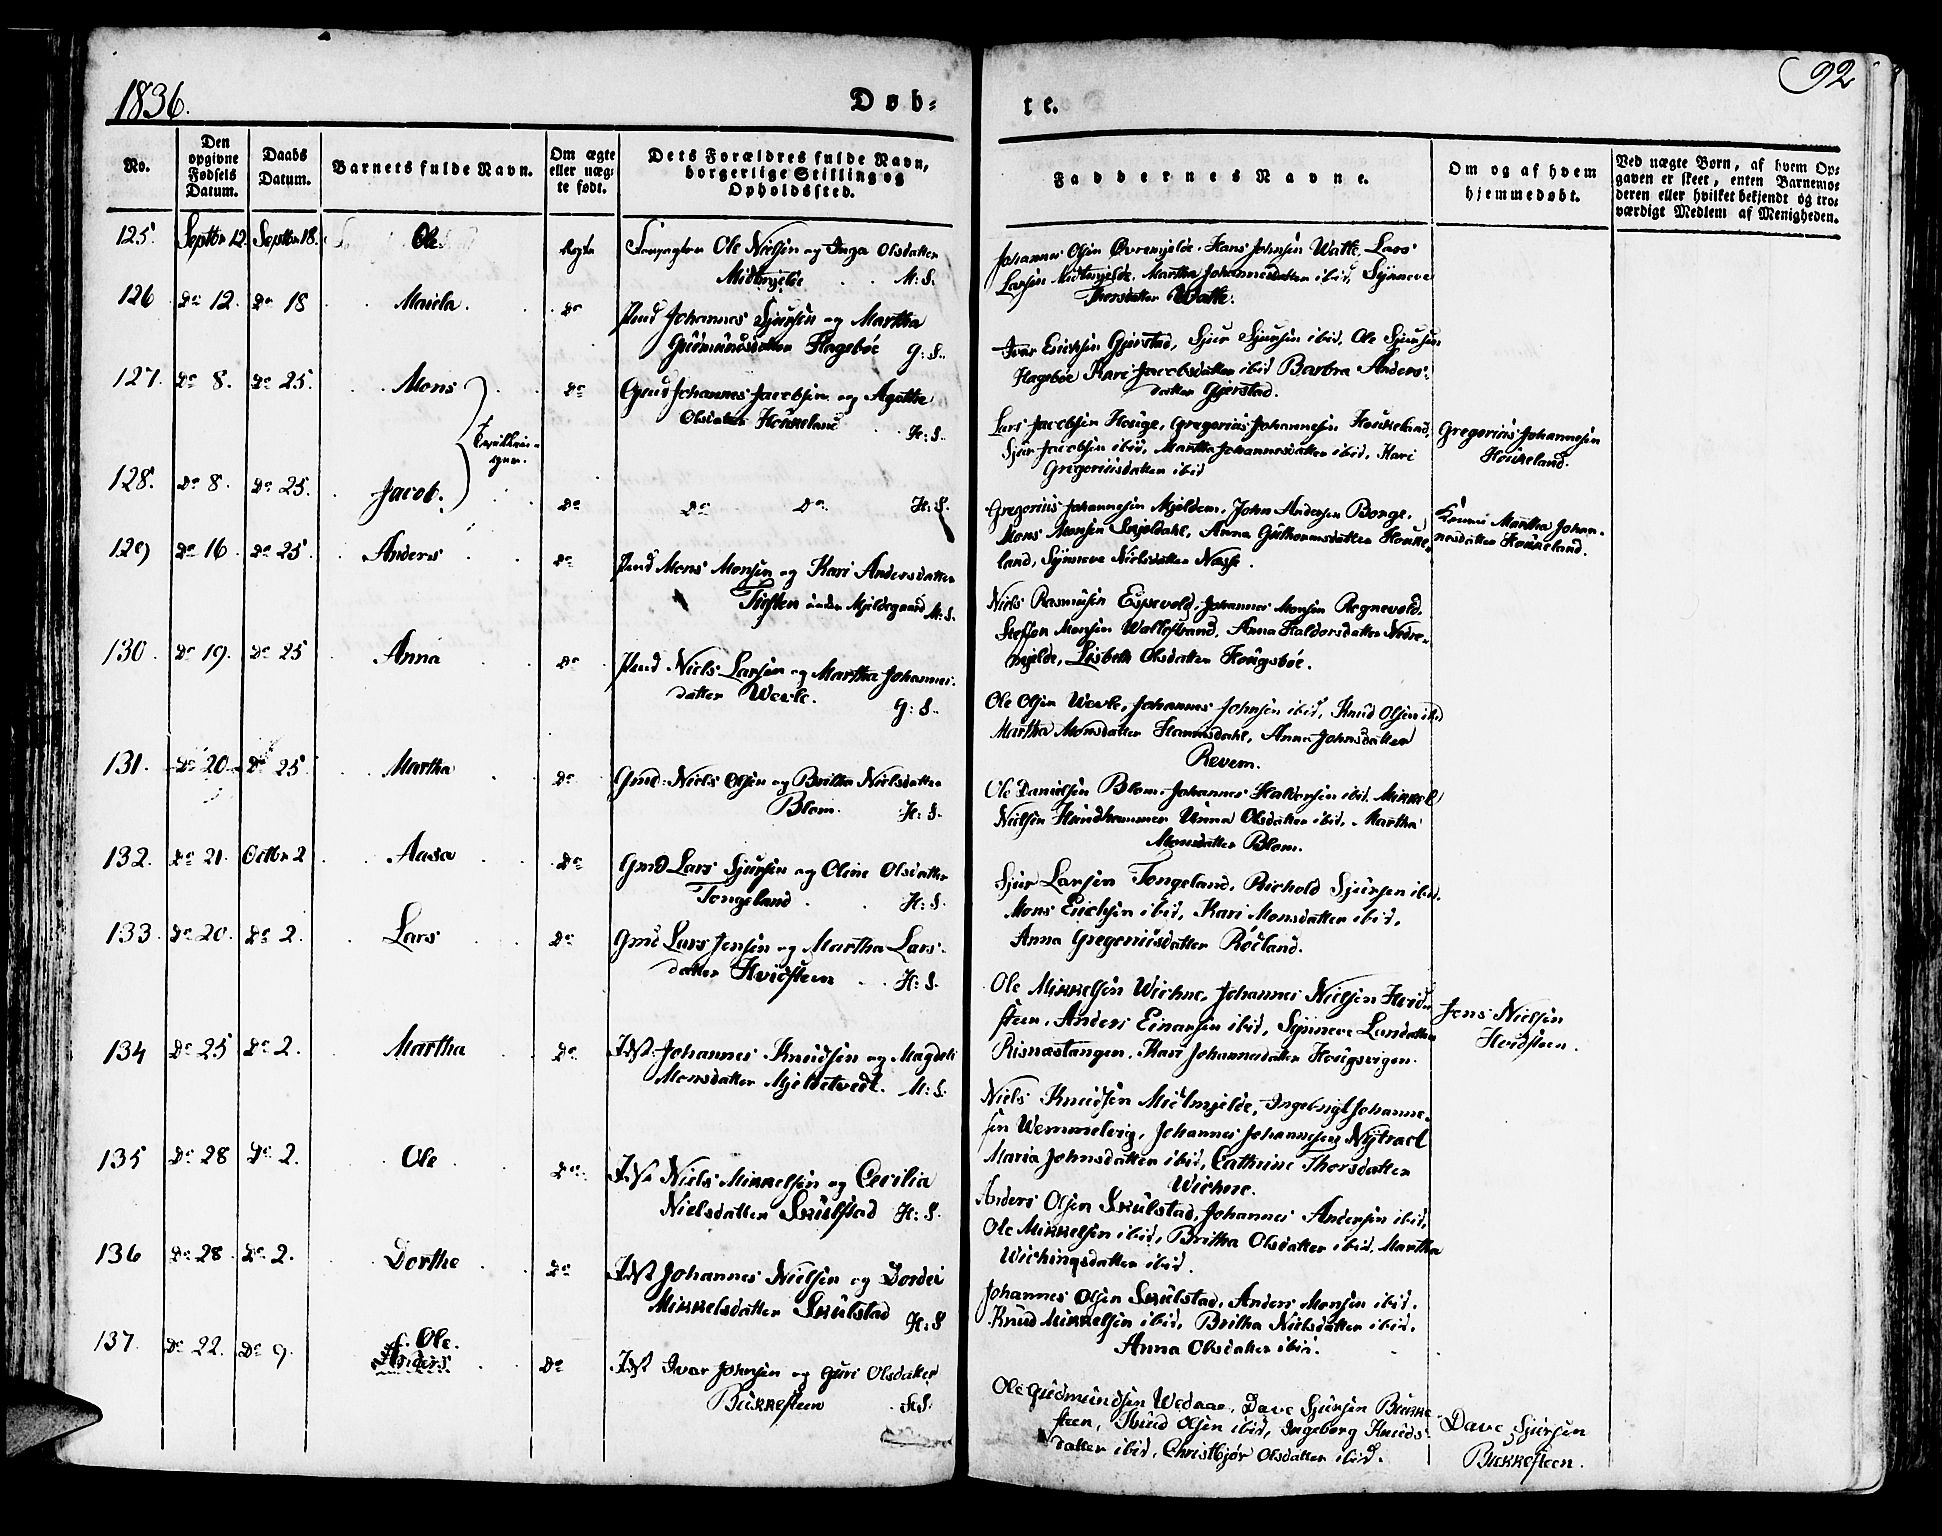 1836.
Døb-
te.
92
No.
Den opgivne Fødsels Datum.
Daabs Datum.
Barnets fulde Navn.
Om ægte eller uægte født.
Dets Forældres fulde Navn, borgerlige Stilling og Opholdssted.
Faddernes Navne.
Om og af hvem hjemmedøbt.
Ved uægte Børn, af hvem Opgaven er skeet, enten Barnemoderen eller hvilket bekjendt og troværdigt Medlem af Menigheden.
125. Septbr 12. Septbr 18. Ole Ægte
Ole Nielsen og Inga Olsdatter
Midtmjelde M: S.
Johannes Olsen Øvremjelde, Hans Johnsen Watle, Lars
Larsen Midtmjelde, Martha Johannesdatter ibid, Synneve
Thorsdatter Watle.
126 Do 12. Do 18 Do
Johannes Sjursen og Martha
Gudmundsdatter Hagebøe G: S.
Ivar Erichsen Gjerstad, Sjur Sjursen ibid, Ole Sjursen
Hagebøe Kari Jacobsdatter ibid Barbra Anders-
datter Gjerstad.
127. Do 8. Do 25. Mons Do
Tvillin-
ger.
Gmd Johannes Jacobsen og Agathe
Olsdatter Houkeland H: S.
Lars Jacobsen Houge, Gregorius Johannesen Houkeland,
Sjur Jacobsen ibid, Martha Johannesdatter ibid, Kari
Gregoriusdatter ibid
Gregorius Johannesen
Houkeland.
128. Do 8. Do 25. Jacob. Do
Do Do H: S.
Gregorius Johannesen Mjeldem, John Andersen Borge,
Mons Monsen Skjeldahl, Anna Guthormsdatter Houke-
land, Synneve Nielsdatter Næsse.
Martha Johan-
nesdatter Houkeland.
129 Do 16. Do 25. Anders Do
Mons Monsen og Kari Andersdatter
under Mjeldegaard M: S.
Niels Rasmusen Espevold, Johannes Monsen Regnevold,
Steffen Monsen Wallestrand, Anna Haldorsdatter Nedre-
mjelde, Lisbeth Olsdatter Hougsbøe.
130. Do 19. Do 25 Anna Do
Niels Larsen og Martha Johannes-
datter Wevle. G: S.
Ole Olsen Wevle, Johannes Johnsen ibid, Knud Olsen ibid
Martha Monsdatter Hannisdahl, Anna Johnsdatter
Revem.
131. Do 20. Do 25 Martha Do
Gmd: Niels Olsen og Britha Nielsdatter
Blom. H: S.
Ole Danielsen Blom, Johannes Haldorsen ibid, Mikkel
Nielsen Hundhammer Unna Olsdatter ibid, Martha
Monsdatter Blom.
132. Do 21. Octbr 2 Aasa Do
Gmd Lars Sjursen og Oline Olsdatter
Tongeland H: S.
Sjur Larsen Tongeland, Richold Sjursen ibid,
Mons Erichsen ibid, Kari Monsdatter ibid,
Anna Gregoriusdatter Rødland.
133. Do 20. Do 2. Lars Do
Gmd Lars Jensen og Martha Lars-
datter Hvidsteen H: S.
Ole Mikkelsen Wichne, Johannes Nielsen Hvid-
steen, Anders Einarsen ibid, Synneve Larsdatter
Risnæstangen, Kari Johannesdatter Hougsvigen.
Jens Nielsen
Hvidsteen.
134 Do 25 Do 2. Martha Do
Johannes Knudsen og Magdeli
Monsdatter Mjeldetvedt. M: S.
Niels Knudsen Midtmjelde, Ingebrigt Johanne-
sen Wemmelvig, Johannes Johannesen Nytræet
Maria Johnsdatter ibid, Cathrine Thorsdatter
Wichne.
135 Do 28 Do 2. Ole Do
Niels Mikkelsen og Cecilia
Nielsdatter Skulstad H: S.
Anders Olsen Skulstad, Johannes Andersen ibid,
Ole Mikkelsen ibid, Britha Olsdatter ibid, Martha
Wichingsdatter ibid.
136 Do 28. Do 2. Dorthe Do
Johannes Nielsen og Dordei
Mikkelsdatter Skulstad H: S
Johannes Olsen Skulstad, Anders Monsen ibid,
Knud Mikkelsen ibid, Britha Nielsdatter ibid,
Anna Olsdatter ibid.
137. Do 22. Do 9. Ole. Anders Do
Ivar Johnsen og Guri Olsdatter
Bukkesteen H: S.
Ole Gudmundsen Wedaae, Dave Sjursen Bukke-
steen, Knud Olsen ibid, Ingeborg Knuds-
datter ibid, Christbjør Olsdatter ibid.
Dave Sjursen
Bukkesteen.